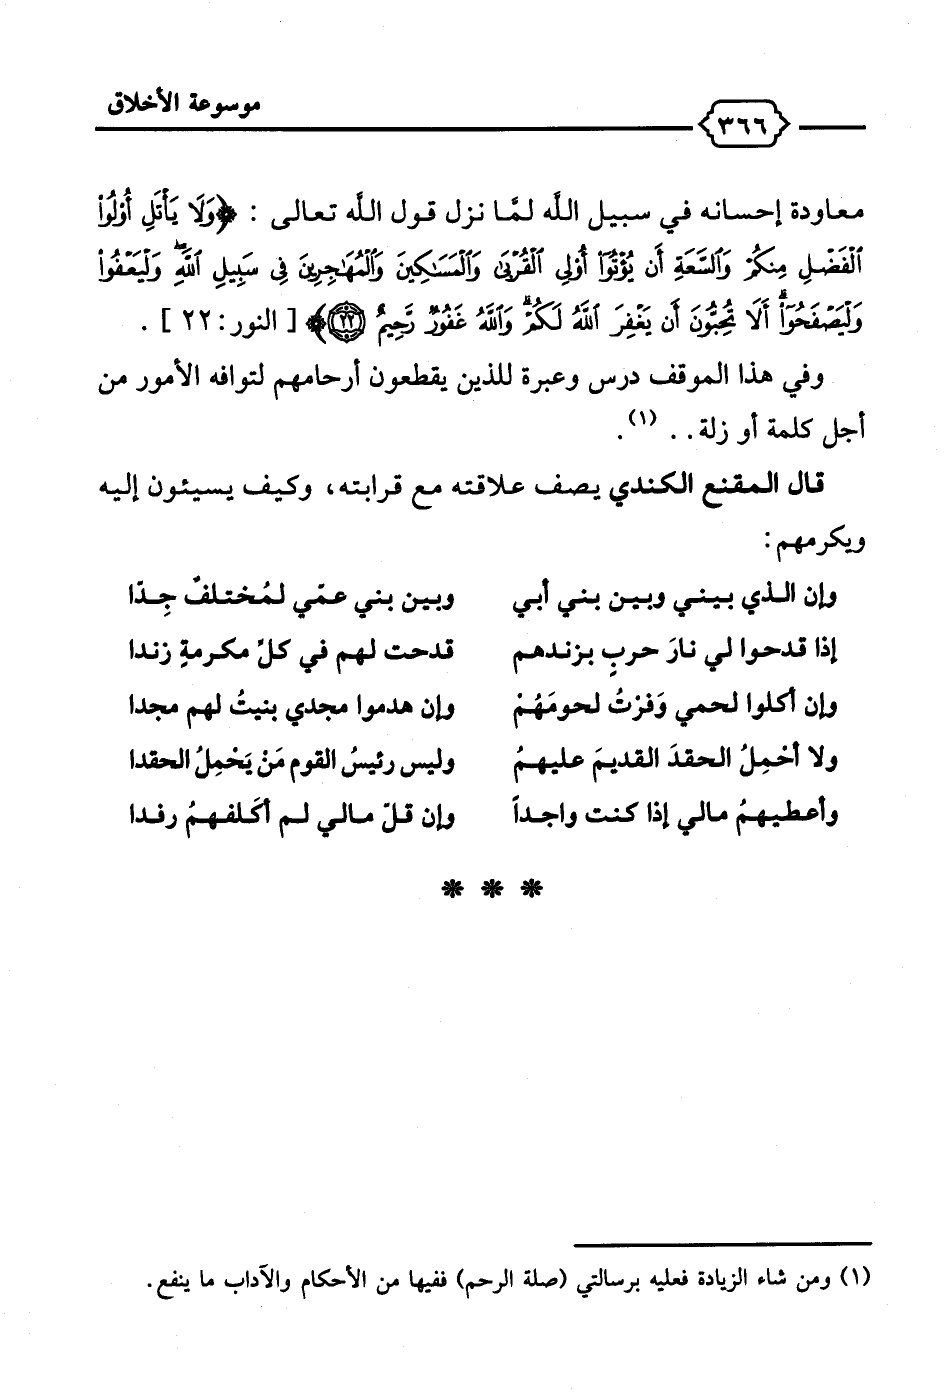 موسوعة الأخلاق
٣٦٦
معاودة إحسانه في سبيل اللَّه لمَّا نزل قول اللَّه تعالى : ﴿وَلَا يَأْتَلِ أُوْلُوا۟
ٱلْفَضْلِ مِنكُمْ وَٱلسَّعَةِ أَن يُؤْتُوٓا۟ أُوْلِى ٱلْقُرْبَىٰ وَٱلْمَسَـٰكِينَ وَٱلْمُهَـٰجِرِينَ فِى سَبِيلِ ٱللَّهِۖ وَلْيَعْفُوا۟
وَلْيَصْفَحُوٓا۟ۗ أَلَا تُحِبُّونَ أَن يَغْفِرَ ٱللَّهُ لَكُمْۗ وَٱللَّهُ غَفُورٌ رَّحِيمٌ ٢٢﴾ [ النور : ٢٢ ] .
وفي هذا الموقف درس وعبرة للذين يقطعون أرحامهم لتوافه الأمور من
أجل كلمة أو زلة . . (١).
قال المقنع الكندي يصف علاقته مع قرابته، وكيف يسيئون إليه
ويكرمهم:
وإن الذي بيني وبين بني أبي وبين بني عمّي لمُختلفٌ جِدّا
إذا قدحوا لي نارَ حربٍ بزندهم قدحت لهم في كلّ مكرمةٍ زندا
وإن أكلوا لحمي وَفرْتُ لحومَهُمْ وإن هدموا مجدي بنيتُ لهم مجدا
ولا أحْمِلُ الحقدَ القديمَ عليهمُ وليس رئيسُ القوم مَنْ يَحْمِلُ الحقدا
وأعطيهمُ مالي إذا كنت واجداً وإن قلّ مالي لم أكَلفهمُ رفدا
* * *
(١) ومن شاء الزيادة فعليه برسالتي (صلة الرحم) ففيها من الأحكام والآداب ما ينفع.